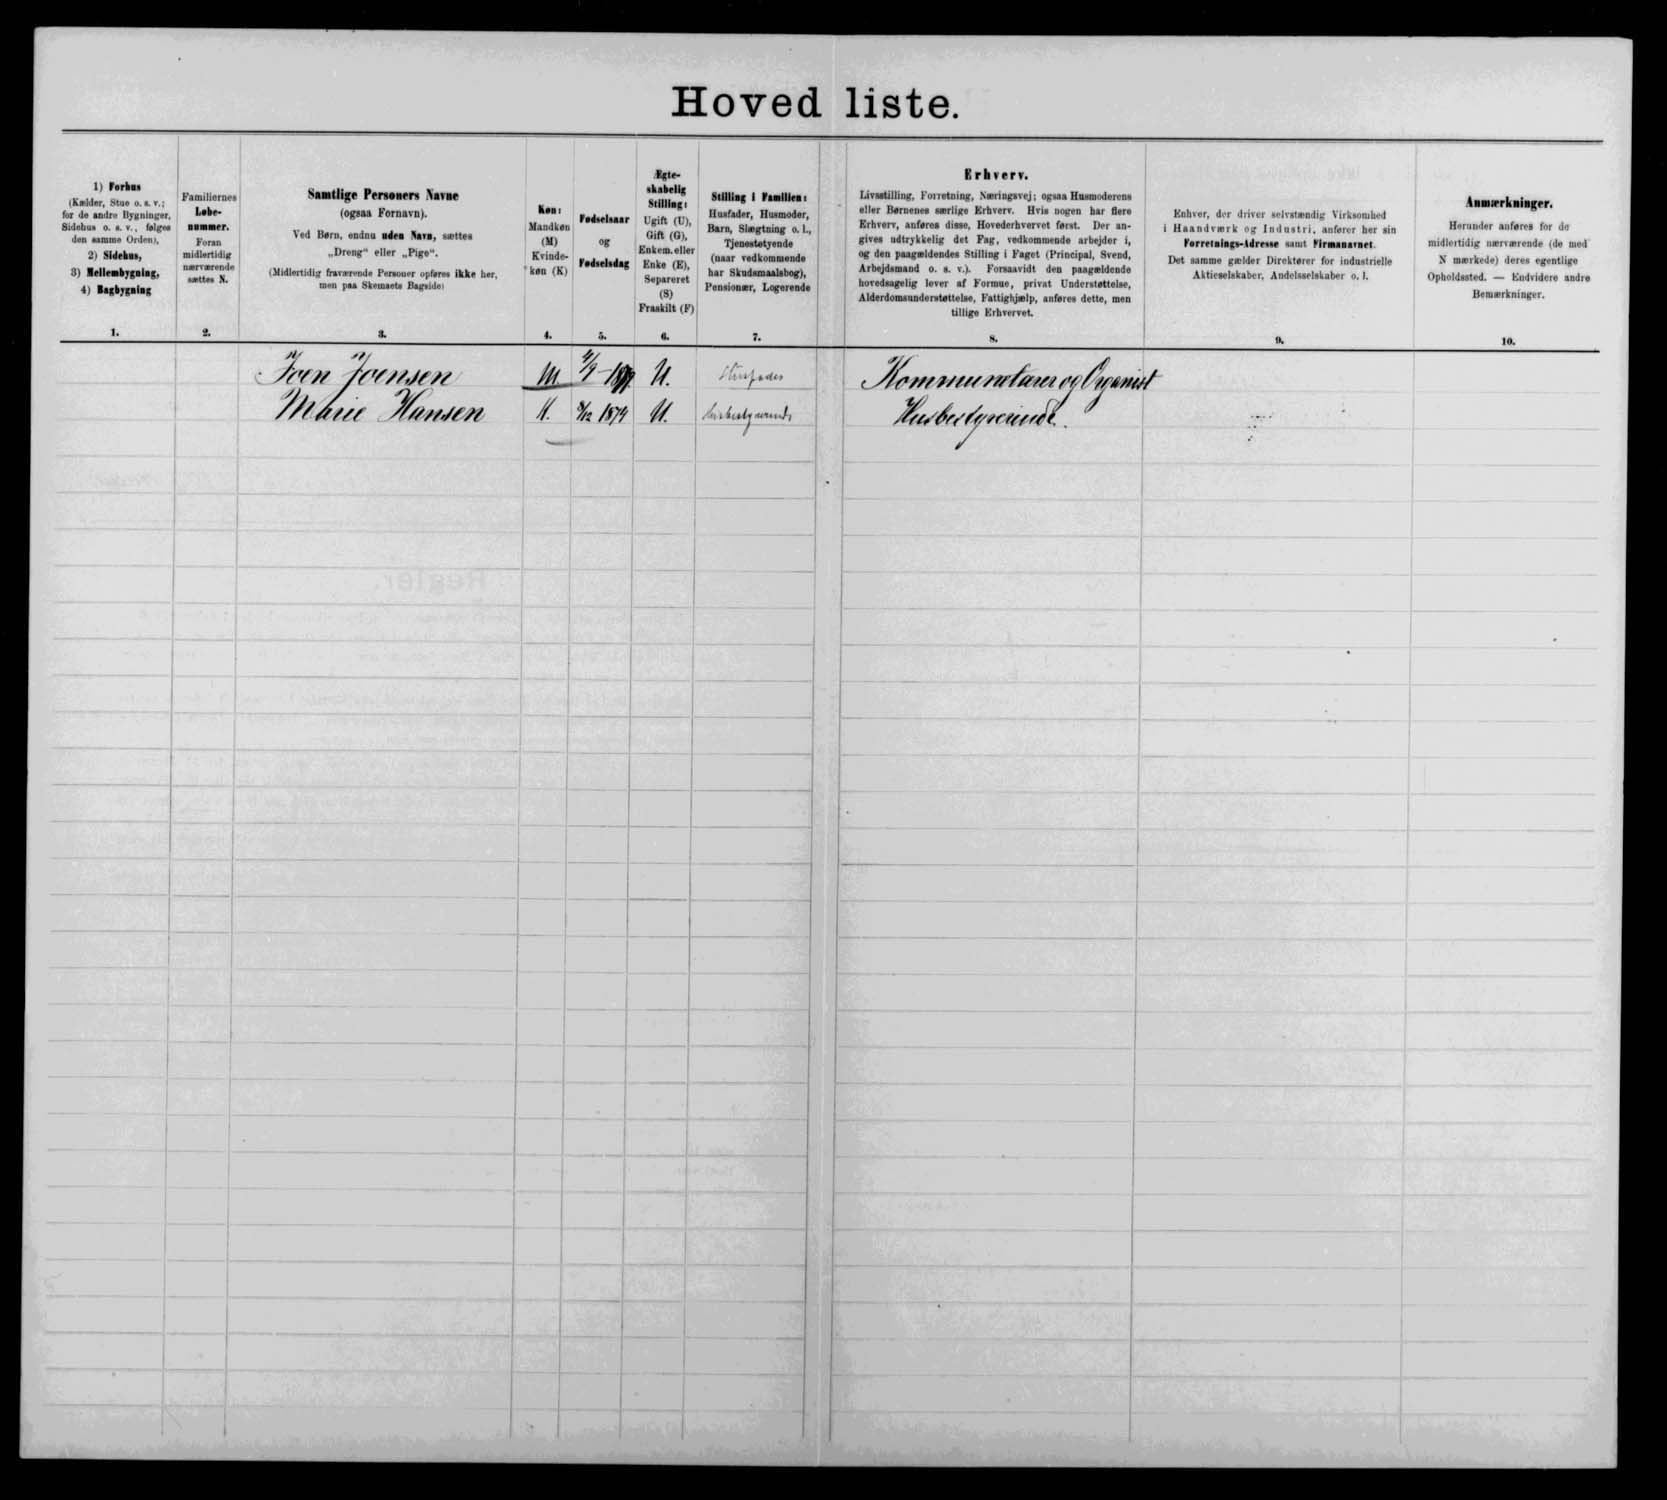 Hovedliste.
1) Forhus
(Kælder, Stue o. s. v.;
for de andre Bygninger,
Sidehus o. s. v., følges
den samme Orden),
2) Sidehus,
3) Mellembygning,
4) Bagbygning
1.
Familiernes
Løbe-
nummer.
Foran
midlertidig
nærværende
sættes N.
2.
Samtlige Personers Navne
(ogsaa Fornavn).
Ved Børn, endnu uden Navn, sættes
„Dreng“ eller „Pige“.
(Midlertidig fraværende Personer opføres ikke her,
men paa Skemaets Bagside)
3.
Køn:
Mandkøn
(M)
Kvinde-
køn (K)
4.
Fødselsaar
og
Fødselsdag
5.
Ægte-
skabelig
Stilling:
Ugift (U),
Gift (G),
Enkem. eller
Enke (E),
Separeret
(S)
Fraskilt (F)
6.
Stilling i Familien:
Husfader, Husmoder,
Barn, Slægtning o. l.,
Tjenestetyende
(naar vedkommende
har Skudsmaalsbog),
Pensionær, Logerende
7.
Erhverv.
Livsstilling, Forretning, Næringsvej; ogsaa Husmoderens
eller Børnenes særlige Erhverv. Hvis nogen har flere
Erhverv, anføres disse, Hovederhvervet først. Der an-
gives udtrykkelig det Fag, vedkommende arbejder i,
og den paagældendes Stilling i Faget (Principal, Svend,
Arbejdsmand o. s. v.). Forsaavidt den paagældende
hovedsagelig lever af Formue, privat Understøttelse,
Alderdomsunderstøttelse, Fattighjælp, anføres dette, men
tillige Erhvervet.
8.
Enhver, der driver selvstændig Virksomhed
i Haandværk og Industri, anfører her sin
Forretnings-Adresse samt Firmanavnet.
Det samme gælder Direktører for industrielle
Aktieselskaber, Andelsselskaber o. l.
9.
Anmærkninger.
Herunder anføres for de
midlertidig nærværende (de med
N mærkede) deres egentlige
Opholdssted. — Endvidere andre
Bemærkninger.
10.
Joen Joensen M U. Husfader Kommunelærer og Organist
Marie Hansen K. 8/12 1874 U. Husbestyrerinde Husbestyrerinde.